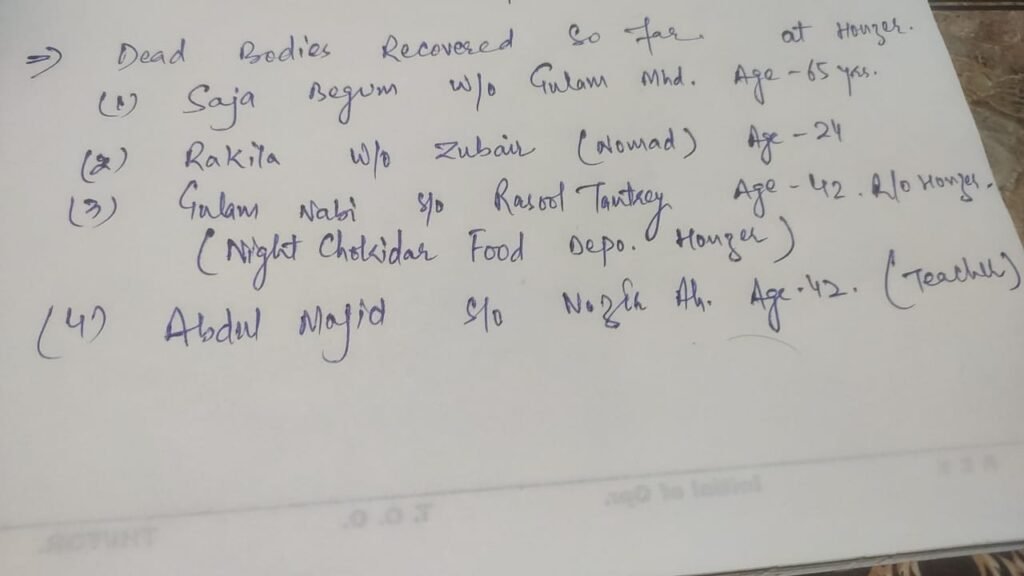 ⇒ Dead Bodies Recovered So far. at Honzer.
(1) Saja Begum W/o Gulam Mhd. Age - 65 yrs.
(2) Rakila W/o Zubair (Nomad) Age - 24
(3) Gulam Nabi S/o Rasool Tantrey Age - 42. R/o Honzer.
(Night Chokidar Food Depo. Honzer)
(4) Abdul Majid S/o Nazir Ah. Age - 42. (Teacher)
Initial of Opr.
T.O.O.